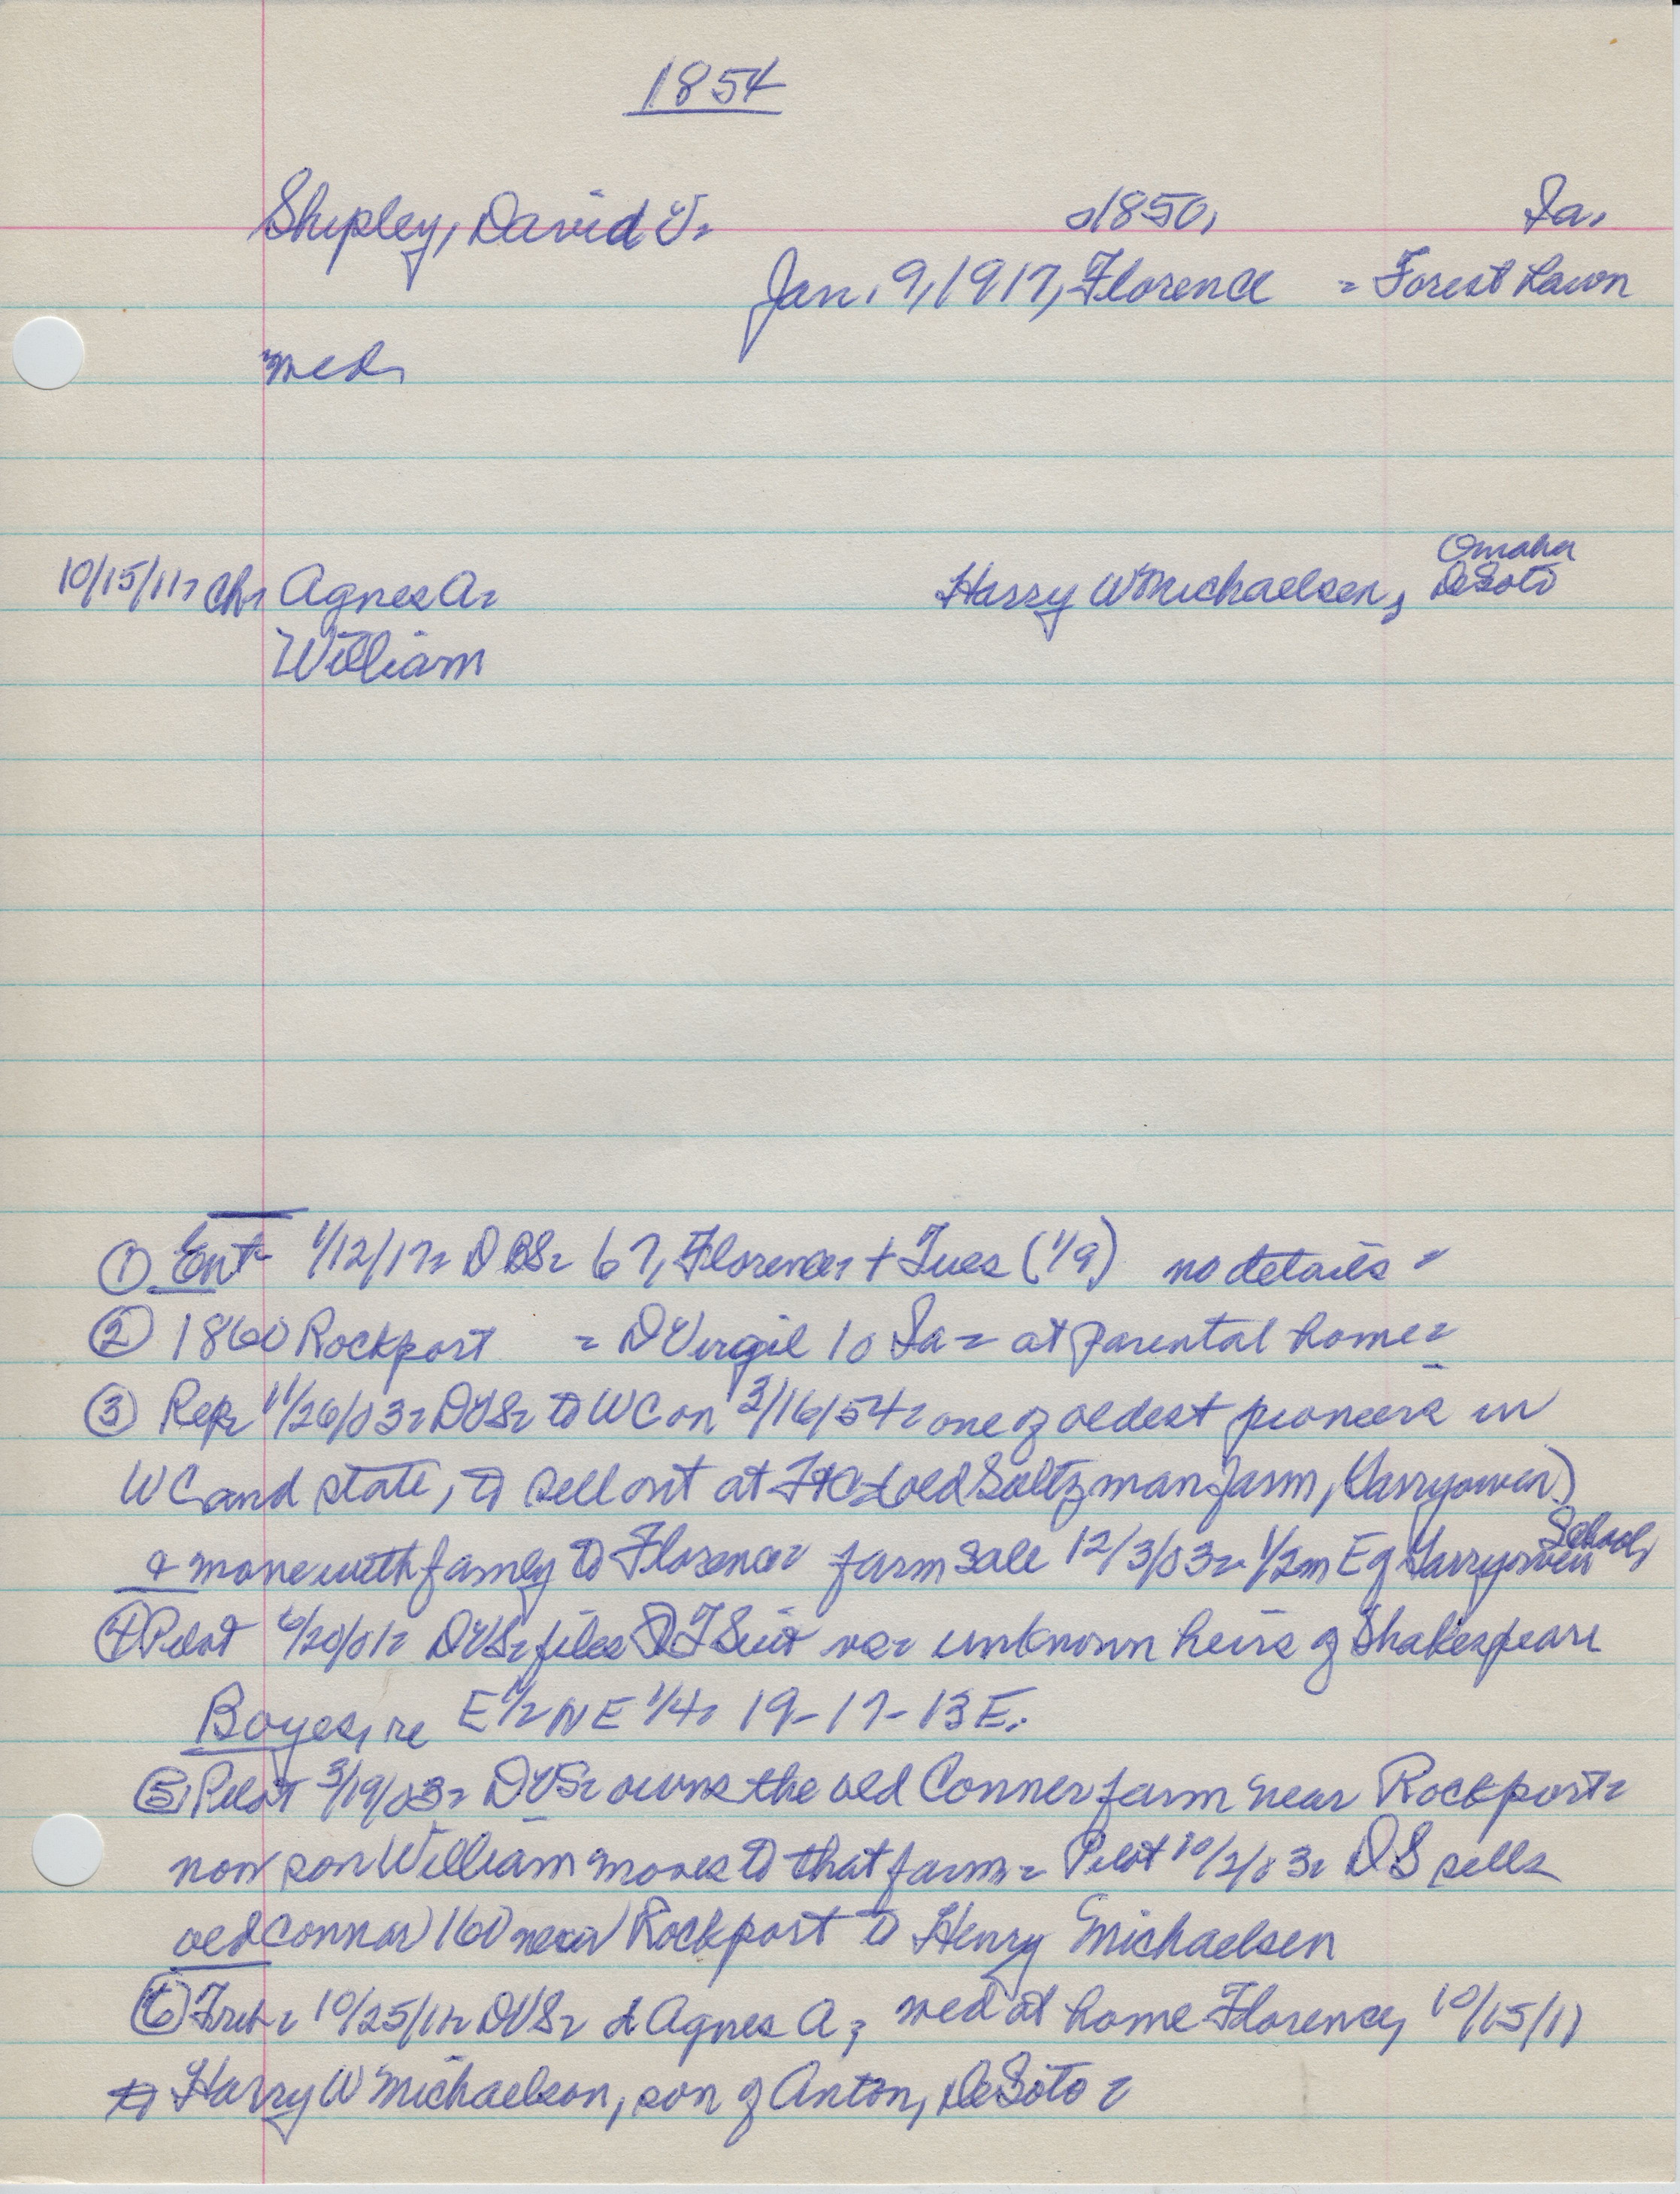 1854
Shipley, David V. c1850, Ia.
Jan. 9, 1917, Florence = Forest Lawn
med.
Omaha
10/15/11= Ch= Agnes A= Harry W Michaelsen, DeSoto
William
① Ent= 1/12/17= DVS= 67, Florence= + Tues (1/9) no details =
② 1860 Rockport = D Virgil 10 Ia = at parental home=
③ Rep= 11/26/03= DVS= to WC on 3/16/54= one of oldest pioneers in
WC and state, to sell out at old Saltzman farm, Garryowen)
School,
& move with family to Florence= farm sale 12/3/03= 1/2m E of Garryowen
④ Pilot 6/20/01= DVS= files QT Suit vs= unknown heirs of Shakespeare
Boyes, re E 1/2 NE 1/4= 19-17-13E.
⑤ Pilot 3/19/03= DVS= owns the old Conner farm near Rockport=
now son William moves to that farm= Pilot 10/2/03= DS sells
old Connor 160 near Rockport to Henry Michaelsen
⑥ Trib= 10/25/11= DVS= d Agnes A, med at home Florence, 10/15/11
to Harry W Michaelson, son of Anton, DeSoto=